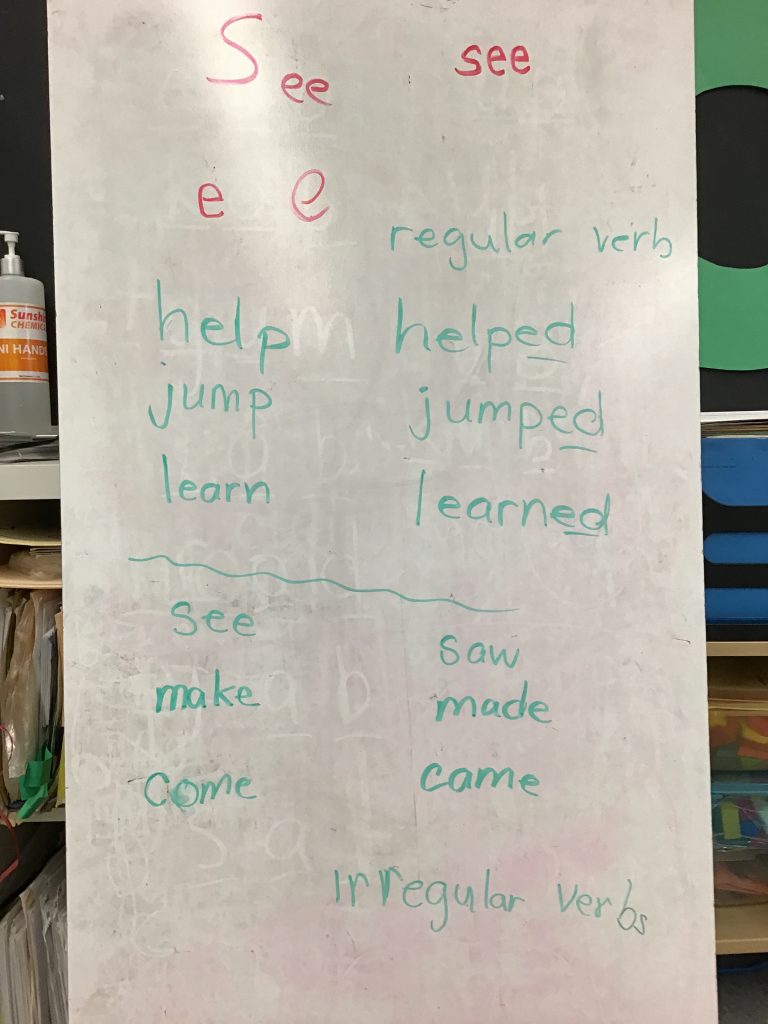 See see
e e
regular verb
help helped
jump jumped
learn learned
see saw
make made
come came
Irregular verbs